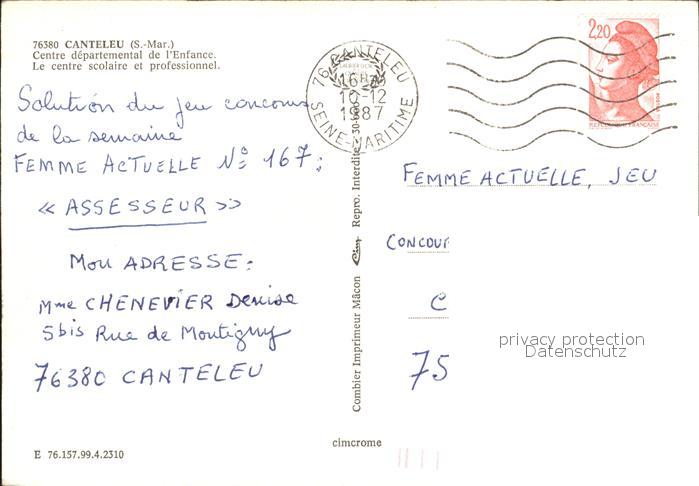 76380 CANTELEU (S.-Mar.)
Centre départemental de l'Enfance.
Le centre scolaire et professionnel.
Solution du jeu concours
de la semaine
FEMME ACTUELLE N° 167 :
« ASSESSEUR »
Mon ADRESSE :
Mme CHENEVIER Denise
5bis Rue de Montigny
76380 CANTELEU
E 76.157.99.4.2310
Combier Imprimeur Mâcon Cim Repro. Interdite
cimcrome
76 CANTELEU
10-12
1987
SEINE-MARITIME
2,20
FEMME ACTUELLE, JEU
CONCOUR
C
75
privacy protection
Datenschutz